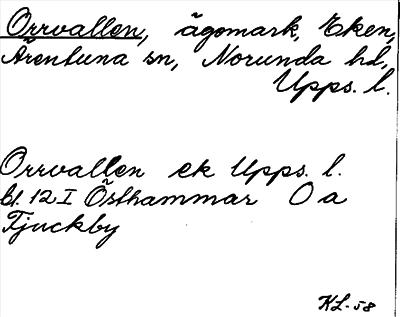 Orrvallen, ägomark, Eken,
Ärentuna sn, Norunda hd,
Upps. l.
Orrvallen ek Upps. l.
bl. 12 I Östhammar O a
Fjuckby
KL-58